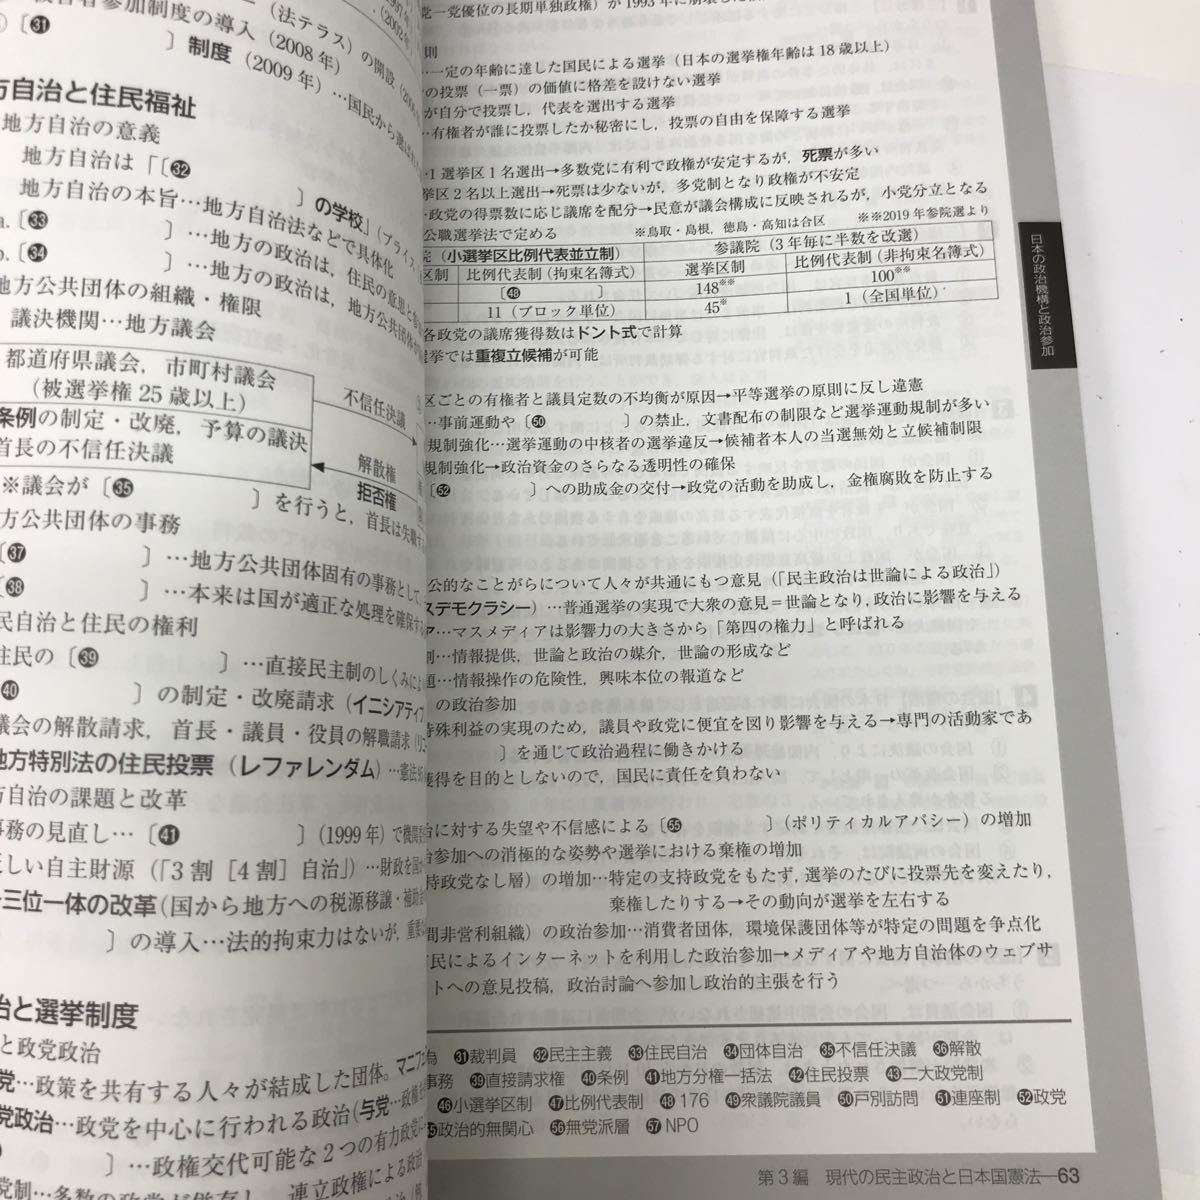 者参加制度の導入（2008年）
（法テラス）の開設
〔㉛　　　〕制度（2009年）…国民から選ばれ
方自治と住民福祉
地方自治の意義
地方自治は「〔㉜　　　〕の学校」（ブライス
地方自治の本旨…地方自治法などで具体化
a.〔㉝　　　〕…地方の政治は，住民の意思と参
b.〔㉞　　　〕…地方の政治は，地方公共団体が
地方公共団体の組織・権限
議決機関…地方議会
都道府県議会，市町村議会
（被選挙権25歳以上）
条例の制定・改廃，予算の議決
首長の不信任決議
不信任決議
解散権
拒否権
※議会が〔㉟　　　〕を行うと，首長は失職す
方公共団体の事務
〔㊲　　　〕…地方公共団体固有の事務として
〔㊳　　　〕…本来は国が適正な処理を確保する
民自治と住民の権利
住民の〔㊴　　　〕…直接民主制のしくみによ
㊵　　　〕の制定・改廃請求（イニシアティブ
議会の解散請求，首長・議員・役員の解職請求（リコ
地方特別法の住民投票（レファレンダム）…憲法95
方自治の課題と改革
事務の見直し…〔㊶　　　〕(1999年）で機関委
乏しい自主財源（「3割［4割］自治」）…財政を国か
三位一体の改革（国から地方への税源移譲・補助金
　　　〕の導入…法的拘束力はないが，重要な
治と選挙制度
と政党政治
党…政策を共有する人々が結成した団体。マニフェ
党政治…政党を中心に行われる政治（与党…政権を
　　　〕…政権交代可能な2つの有力政党
党制…多数の政党が併存し，連立政権による政治
党一党優位の長期単独政権）が1993年に崩壊した
則
…一定の年齢に達した国民による選挙（日本の選挙権年齢は18歳以上）
の投票（一票）の価値に格差を設けない選挙
が自分で投票し，代表を選出する選挙
…有権者が誰に投票したか秘密にし，投票の自由を保障する選挙
1選挙区1名選出→多数党に有利で政権が安定するが，死票が多い
挙区2名以上選出→死票は少ないが，多党制となり政権が不安定
…政党の得票数に応じ議席を配分→民意が議会構成に反映されるが，小党分立となる
公職選挙法で定める　※鳥取・島根，徳島・高知は合区　※※2019年参院選より
院（小選挙区比例代表並立制）　参議院（3年毎に半数を改選）
区制　比例代表制（拘束名簿式）　選挙区制　比例代表制（非拘束名簿式）
〔㊽　　　〕　148※※　100※※
11（ブロック単位）　45※　1（全国単位）
各政党の議席獲得数はドント式で計算
選挙では重複立候補が可能
区ごとの有権者と議員定数の不均衡が原因→平等選挙の原則に反し違憲
…事前運動や〔㊿　　　〕の禁止，文書配布の制限など選挙運動規制が多い
規制強化…選挙運動の中核者の選挙違反→候補者本人の当選無効と立候補制限
規制強化→政治資金のさらなる透明性の確保
〔52　　　〕への助成金の交付→政党の活動を助成し，金権腐敗を防止する
公的なことがらについて人々が共通にもつ意見（「民主政治は世論による政治」）
スデモクラシー）…普通選挙の実現で大衆の意見＝世論となり，政治に影響を与える
ア…マスメディアは影響力の大きさから「第四の権力」と呼ばれる
割…情報提供，世論と政治の媒介，世論の形成など
題…情報操作の危険性，興味本位の報道など
の政治参加
特殊利益の実現のため，議員や政党に便宜を図り影響を与える→専門の活動家であ
　　　〕を通じて政治過程に働きかける
獲得を目的としないので，国民に責任を負わない
治に対する失望や不信感による〔55　　　〕（ポリティカルアパシー）の増加
治参加への消極的な姿勢や選挙における棄権の増加
持政党なし層）の増加…特定の支持政党をもたず，選挙のたびに投票先を変えたり，
棄権したりする→その動向が選挙を左右する
間非営利組織）の政治参加…消費者団体，環境保護団体等が特定の問題を争点化
市民によるインターネットを利用した政治参加→メディアや地方自治体のウェブサ
トへの意見投稿，政治討論へ参加し政治的主張を行う
為　㉛裁判員　㉜民主主義　㉝住民自治　㉞団体自治　㉟不信任決議　㊱解散
事務　㊴直接請求権　㊵条例　㊶地方分権一括法　㊷住民投票　㊸二大政党制
㊻小選挙区制　㊼比例代表制　㊽176　㊾衆議院議員　㊿戸別訪問　51連座制　52政党
55政治的無関心　56無党派層　57NPO
日本の政治機構と政治参加
第3編　現代の民主政治と日本国憲法—63